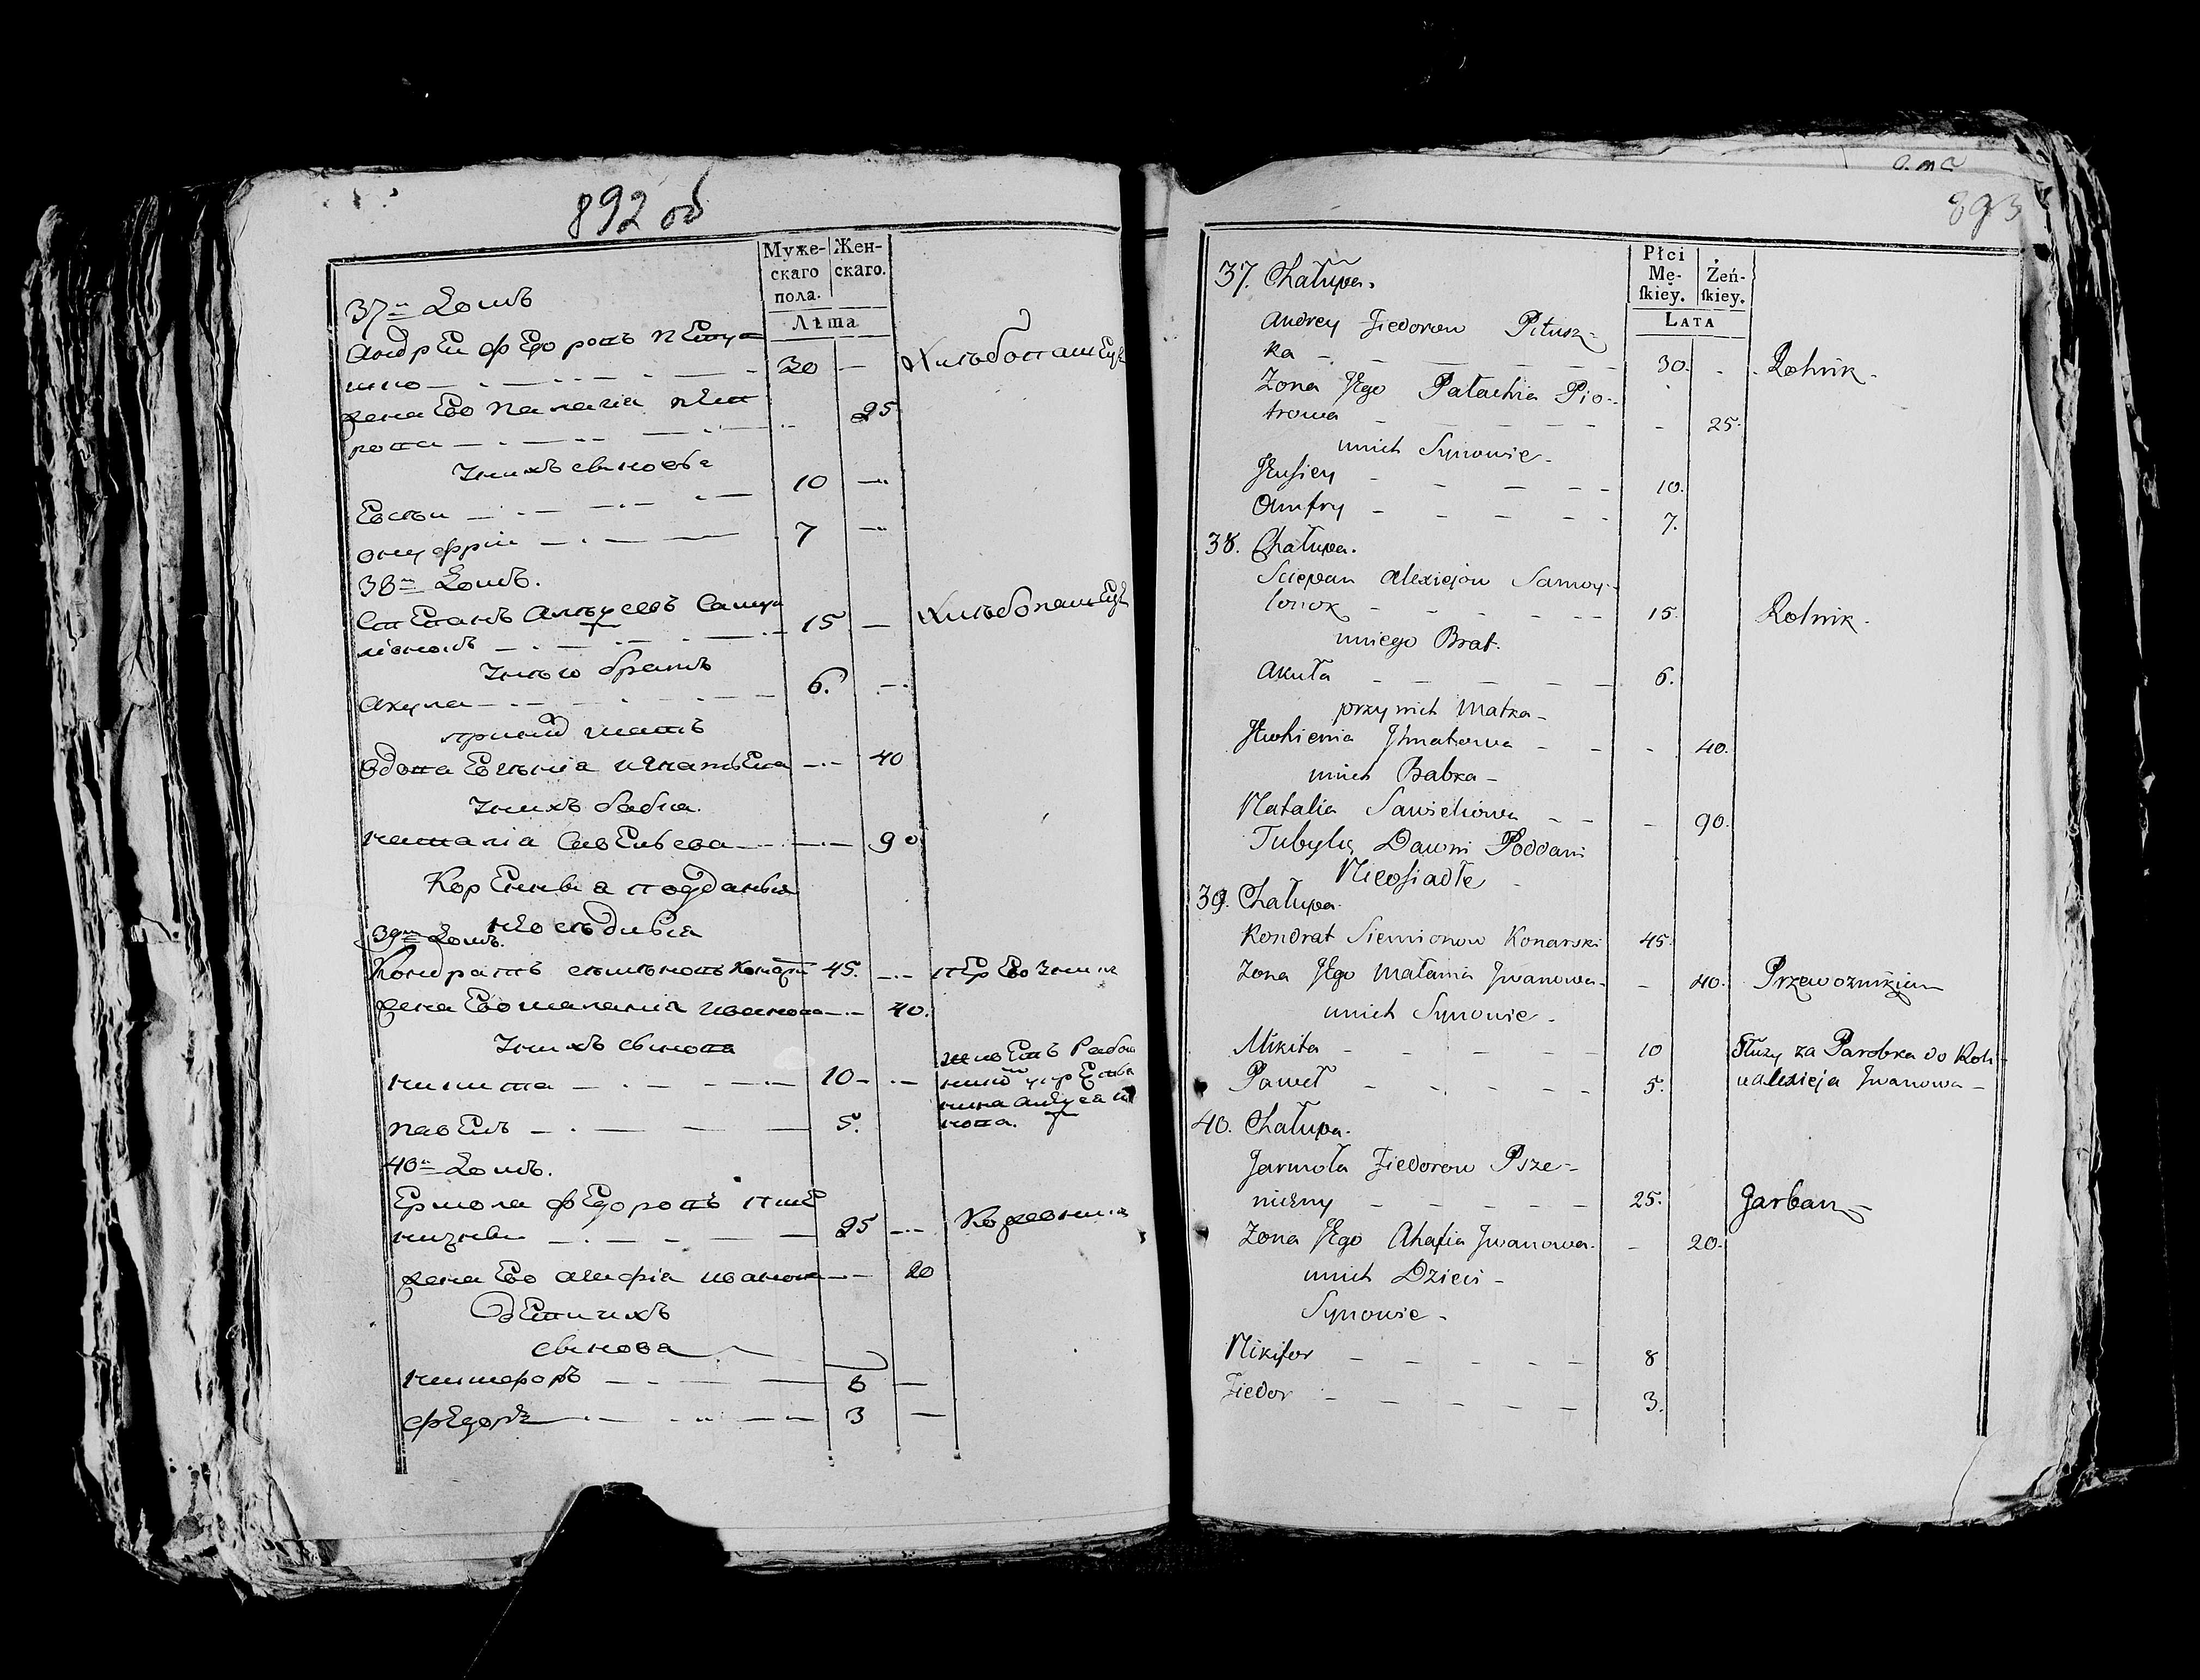 892 об
Муже-
скаго
пола.
Жен-
скаго.
Лѣта
37й Домъ
Андрей Федоровъ Пету
шко 30 Хлѣбопашец
жена Ево Палагія Пет
рова 25
У нихъ сыновья
Евсѣи 10
Онуфрии 7
38й Домъ.
Степанъ Алѣксеевъ Самуи
лѣнокъ 15 Хлѣбопашец
У нѣго братъ
Акула 6.
при них мать
вдова Евгѣнія Игнатьева 40
У нихъ бабка.
Наталіа Савельева 90
Коренныя подданыя
неоседлыя
39й Домъ.
Кондратъ Сѣмѣновъ 45. перевозник
жена Ево Маланія Иванова 40.
У нихъ сынова
Никита 10
Павелъ 5.
40й Домъ.
Ермола Федоровъ пше
ничны 25 Кожевник
жена Ево Агафіа Иванова 20
дети ихъ
сынова
Никифоръ 8
Федоръ 3
893
Płci
Mę-
ſkiey.
Żeń-
ſkiey.
Lata
37. Chałupa.
Andrey Fiedorow Pitusz-
ka 30. Rolnik.
Zona Jego Pałachia Pio-
trowa 25.
u nich Synowie.
Jewsiey 10.
Onufry 7.
38. Chałupa.
Sciepan Alexiejow Samoy-
lonok 15. Rolnik.
u niego Brat.
Akuła 6.
przy nich Matka
Jewhienia Ihnatowa 40.
u nich Babka
Natalia Sawielowa 90.
Tubylcy Dawni Poddani
Nieosiadłe
39. Chałupa.
Kondrat Siemionow Konarski 45.
Zona Jego Małania Jwanowa 40. Przewoznikiem
u nich Synowie.
Mikita 10 Służy za Parobka do Roli
Paweł 5. u Alexieja Jwanowa
40. Chałupa.
Jarmoła Fiedorow Psze-
niczny 25. Garbarz
Zona Jego Ahafia Jwanowa. 20.
u nich Dzieci
Synowie.
Nikifor 8
Fiedor 3.